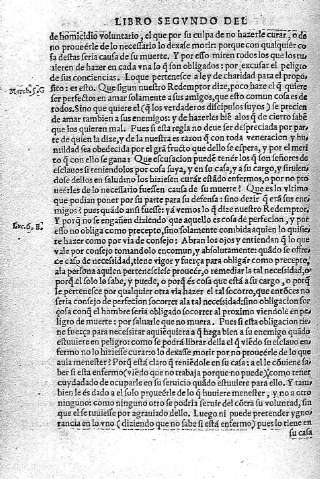 LIBRO SEGVNDO DEL
de homicidio voluntario, el que por su culpa de no hazerle curar, o de
no proueerle de lo necesario lo dexase morir: porque con qualquier co
sa destas seria causa de su muerte. Y por esso miren todos los que
de hazer en cada vna lo q̃ son obligados: por escusar el peligro
de sus conciencias. Lo que pertenesce a ley de charidad para el propo
Math. 5. G
sito: es esto. Que segun nuestro Redemptor dize, poco haze el q̃ quiere
ser perfecto en amar solamente a sus amigos, que esto comun cosa es de
todos. Sino que quiere el q̃ los verdaderos discipulos suyos se precien
de amar tambien a sus enemigos: y de hazerles biẽ a los q̃ de cierto sabẽ
que los quieren mal. Pues si esta regla no deue ser despreciada por par
te de quien la dize, y de la nuestra es razon q̃ con toda veneracion y hu
mildad sea obedecida por el grã fructo que dello se espera, y por el meri
to q̃ con ello se gana: Que escusacion puede tener los q̃ son señores de
esclauos teniendolos por cosa suya, y en su casa, y a su cargo, y siruiẽn
dose dellos en salud no los hiziesen curar estãdo enfermos, o por no pro
ueerles de lo necesario fuessen causa de su muerte? Que es lo vltimo
que podian poner por su parte para su defensa: sino dezir q̃ erã sus ene
migos? pues quãdo ansi fuesse: ya vemos lo q̃ dize nuestro Redemptor.
Exc. 6, E.
Y porq̃ no se engañen diziendo que aquello es cosa de perfecion, y que por
esso no obliga como precepto, sino solamente combida a quien lo quisie
re hazer como por via de consejo: Abran los ojos y entiendan q̃ lo que
vale por consejo tomandolo en comun, y absolutamente: quãdo se offre
ce caso de necessidad, tiene vigor y fuerça para obligar como precepto,
a la persona a quien pertenesciese proueer, o remediar la tal necessidad, o
porq̃ el solo la sabe, y puede, o porq̃ es cosa que està a su cargo, o porq̃
le pertenesce por qualquier otra via hazer el tal socorro, que entõces no
seria consejo de perfecion socorrer a la tal necessidad: sino obligacion for
çosa con q̃ el hombre seria obligado socorrer al proximo viendole en pe
ligro de muerte: por saluarle que no muera. Pues si esta obligacion tie
ne fuerça para necessitar a quiẽquiera a q̃ haga bien a su enemigo quãdo
estuuiere en peligro: como se podrà librar della el q̃ viẽdo su esclauo en
fermo no lo hiziesse curar o lo dexasse morir por no proueerle de lo que
auia menester? Porq̃ està claro q̃ teniẽdole en su casa: a el le cõuiene sa
ber si està enfermo (viẽdo que no trabaja porque no puede) y como tener
cuydado de ocuparle en su seruicio quãdo estuuiere para ello. Y tam
bien le es dado a el solo proueerle de lo q̃ huuiere menester, y no a otro
ninguno: como ninguno otro se podria seruir del cõtra su voluntad, sin
que el se tuuiesse por agrauiado dello. Luego ni puede pretender ygno
rancia en lo vno (diziendo que no sabe si està enfermo) pues lo tiene en
su casa